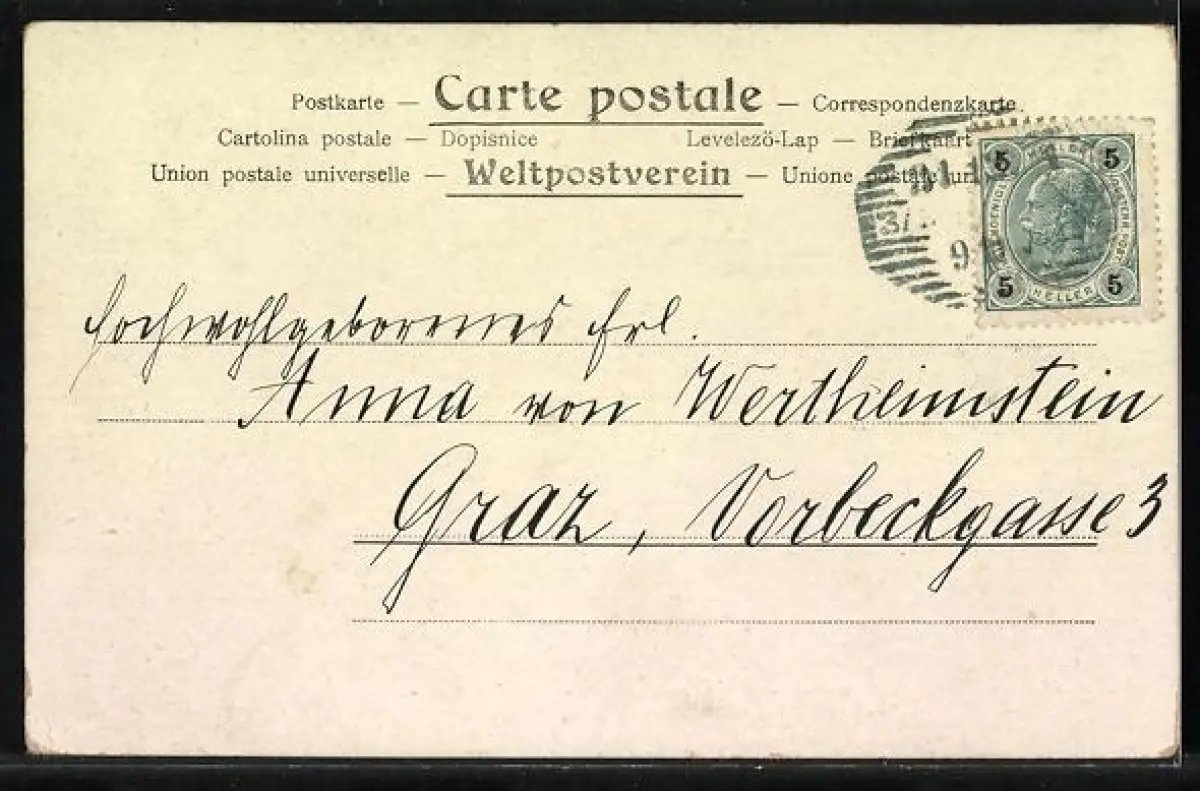 Postkarte — Carte postale — Correspondenzkarte.
Cartolina postale — Dopisnice Levelezö-Lap — Briefkaart
Union postale universelle — Weltpostverein — Unione postale
5 5
HELLER
5 5
3/
9
Hochwohlgeborenes Frl.
Anna von Wertheimstein
Graz, Vorbeckgasse 3